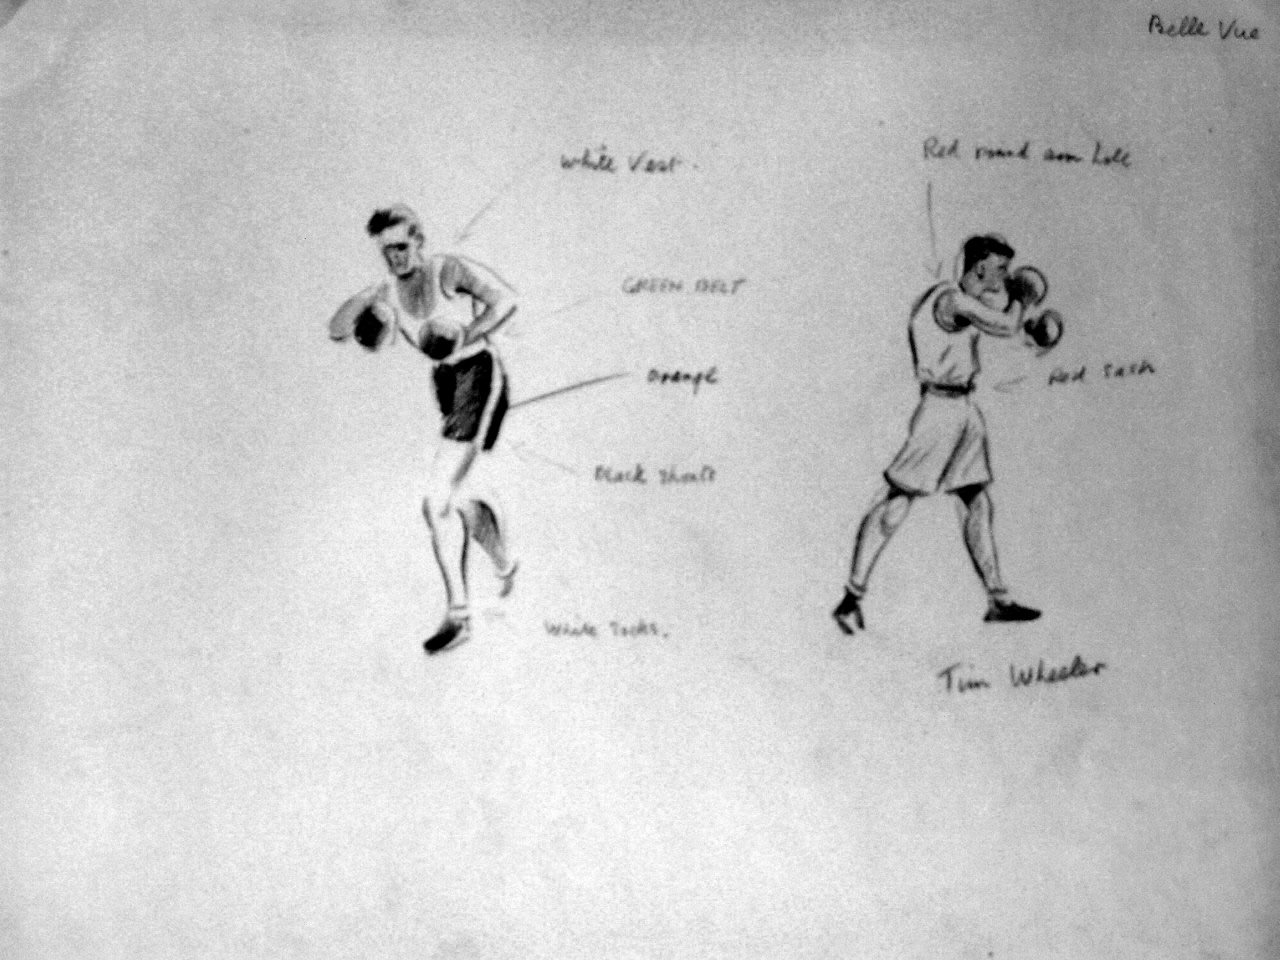 Belle Vue
White Vest.
Red round arm hole
GREEN BELT
Orange
Red Sash
Black Shorts
White Socks.
Tim Wheeler